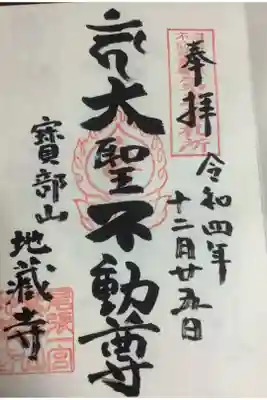 奉拝
令和四年
十二月廿五日
大聖不動尊
寶部山
地藏寺
尾張一宮